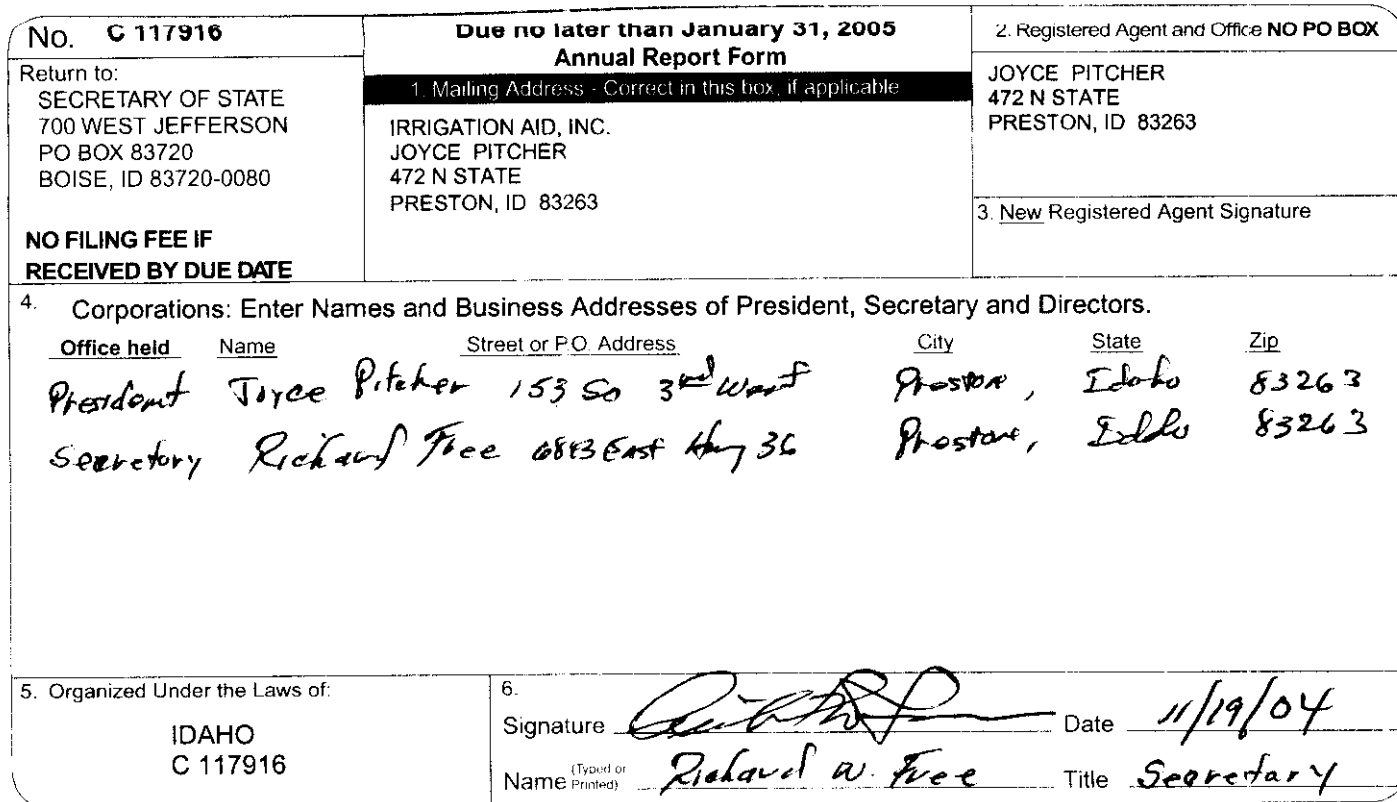 No. C 117916
Return to:
SECRETARY OF STATE
700 WEST JEFFERSON
PO BOX 83720
BOISE, ID 83720-0080
NO FILING FEE IF
RECEIVED BY DUE DATE
Due no later than January 31, 2005
Annual Report Form
1. Mailing Address - Correct in this box, if applicable
IRRIGATION AID, INC.
JOYCE PITCHER
472 N STATE
PRESTON, ID 83263
2. Registered Agent and Office NO PO BOX
JOYCE PITCHER
472 N STATE
PRESTON, ID 83263
3. New Registered Agent Signature
4. Corporations: Enter Names and Business Addresses of President, Secretary and Directors.
Office held Name Street or P.O. Address City State Zip
President Joyce Pitcher 153 So 3rd West Preston, Idaho 83263
Secretary Richard Free 6843 East Hwy 36 Preston, Idaho 83263
5. Organized Under the Laws of:
IDAHO
C 117916
6.
Signature Date 11/19/04
Name (Typed or Printed) Richard W. Free Title Secretary